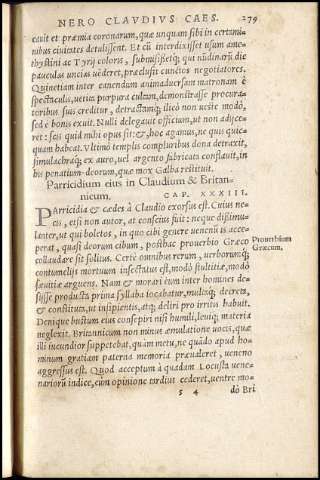 NERO CLAVDIVS CAES. 279
cauit et præmia coronarum, quæ unquam sibi in certami-
nibus ciuitates detulissent. Et cũ interdixisset usum ame-
thystini ac Tyrij coloris, submisissetq; qui nũdinarũ die
pauculas uncias uẽderet, præclusit cunctos negotiatores.
Quinetiam inter canendum animaduersam matronam è
spectaculis, uetita purpura cultam, demonstrasse procura-
toribus suis creditur, detractamq; ilicò non ueste modò,
sed & bonis exuit. Nulli delegauit officium, ut non adijce-
ret: Scis quid mihi opus sit: &, hoc agamus, ne quis quic-
quam habeat. Vltimò templis compluribus dona detraxit,
simulachraq; ex auro, uel argento fabricata conflauit, in
his penatium deorum, quæ mox Galba restituit.
Parricidium eius in Claudium & Britan-
nicum. CAP. XXXIII.
PArricidia & cædes à Claudio exorsus est. Cuius ne-
cis, etsi non autor, at conscius fuit: neque dißimu-
lanter, ut qui boletos, in quo cibi genere uenenũ is acce-
perat, quasi deorum cibum, posthac prouerbio Græco
collaudare sit solitus. Certè omnibus rerum, uerborumq́;
contumelijs mortuum insectatus est, modò stultitiæ, modò
sæuitiæ arguens. Nam & morari eum inter homines de-
sijsse producta prima syllaba iocabatur, multaq; decreta,
& constituta, ut insipientis, atq; deliri pro irritis habuit.
Denique bustum eius consepiri nisi humili, leuiq; materia
neglexit. Britannicum non minus æmulatione uocis, quæ
illi iucundior suppetebat, quàm metu, ne quãdo apud ho-
minum gratiam paterna memoria præualeret, ueneno
aggressus est. Quod acceptum à quadam Locusta uene-
nariorũ indice, cũm opinione tardius cederet, uentre mo-
s 4 dò Bri
Prouerbium
Græcum.